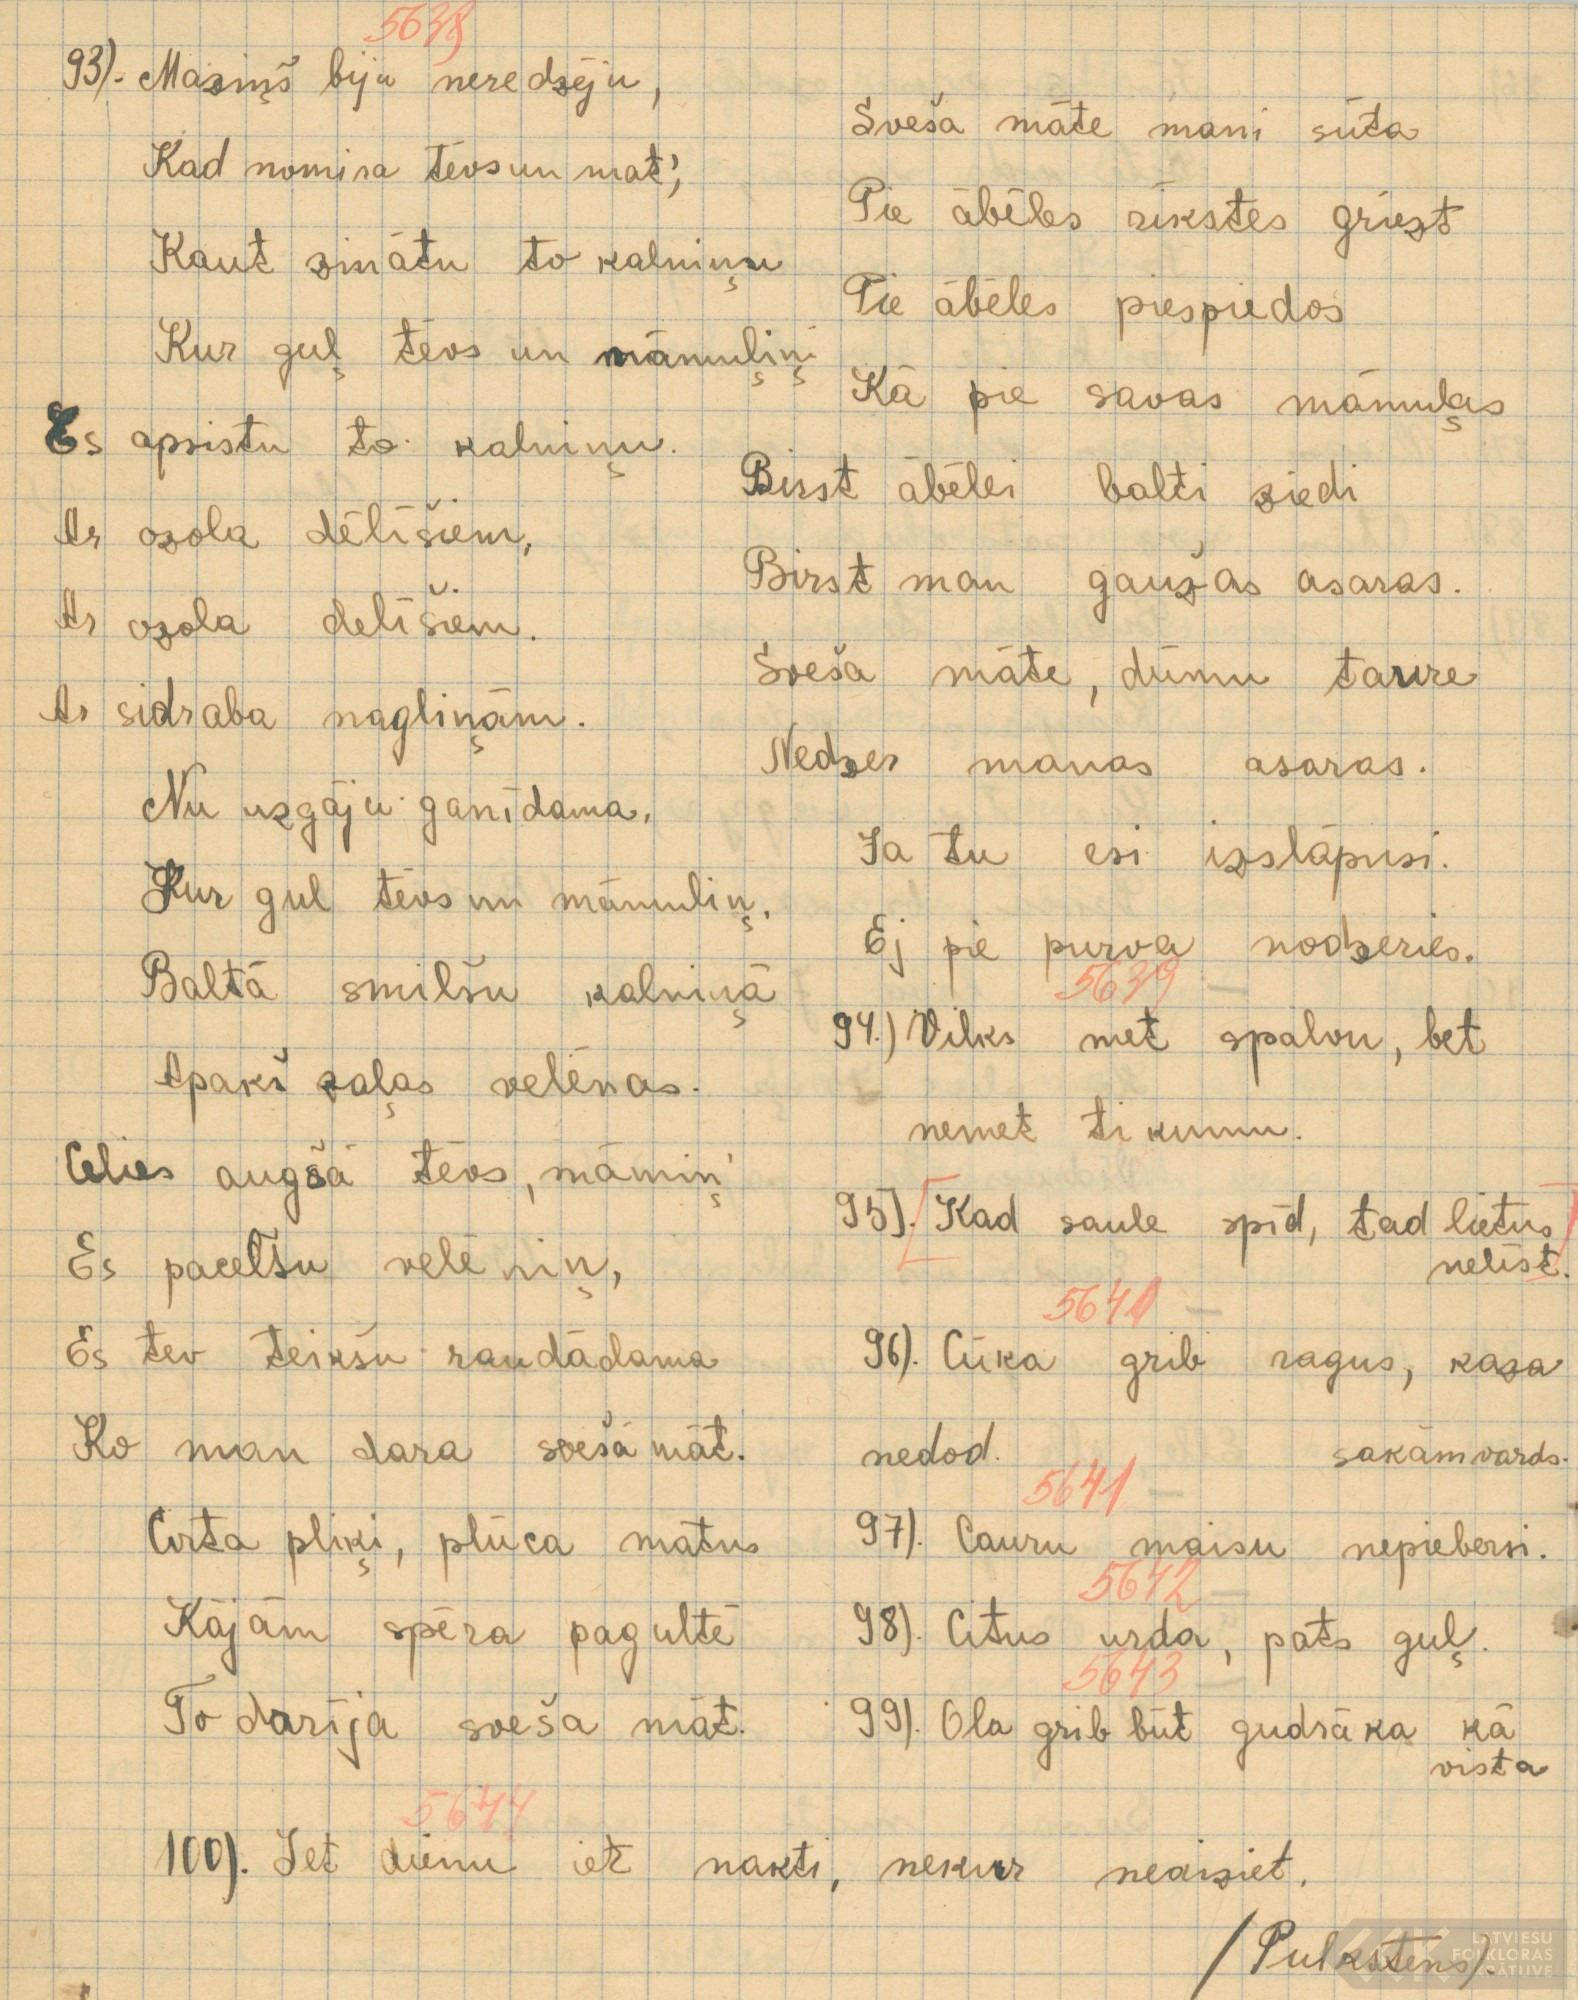 5638
93). Maziņš biju neredzēju,
Kad nomira tēvs un mat',
Kaut zinātu to kalniņu
Kur guļ tēvs un māmuļiņ
Es apsistu to kalniņu.
Ar ozola dēlīšiem,
Ar ozola delīšiem.
Ar sidraba nagliņām.
Nu uzgāju ganīdama,
Kur gul tēvs un māmuliņ,
Baltā smilšu kalniņā
Apakš zaļas velēnas.
Celies augšā tēvs, māmiņ'
Es pacelšu velēniņ,
Es tev teikšu raudādama
Ko man dara svešā māt.
Cirta pliķi, plūca matus
Kājām spēra pagultē
To darīja sveša māt.
Sveša māte mani sūta
Pie ābēles rīkstes griezt
Pie ābēles piespiedos
Kā pie savas māmuļas
Birst ābēlei balti ziedi
Birst man gaužas asaras.
Sveša māte, dūmu taure
Nedzer manas asaras.
Ja tu esi izslāpusi.
Ej pie purva nodzeries.
5639 —
94.) Vilks met spalvu, bet
nemet tikumu.
95). [Kad saule spīd, tad lietus
nelīst.]
5640 —
96). Cūka grib ragus, kaza
nedod. sakāmvards.
5641 —
97). Cauru maisu nepiebersi.
5642 —
98). Citus urda, pats guļ.
5643 —
99). Ola grib būt gudrāka kā
vista
5644
100). Iet dienu iet nakti, nekur neaiziet.
/Pulkstens).
LATVIEŠU
FOLKLORAS
KRĀTUVE